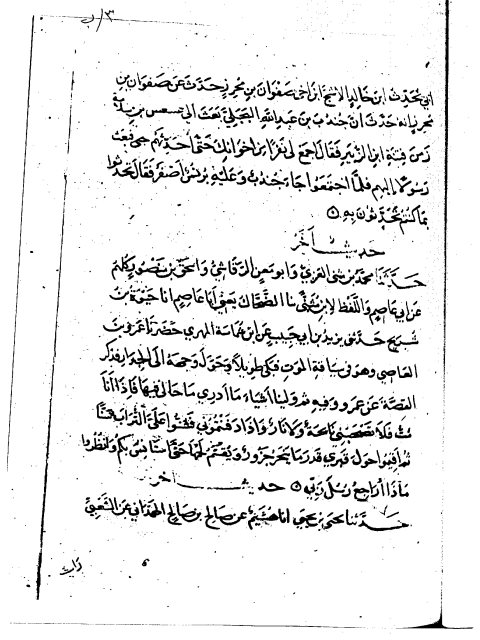 ٣/ب
ابي يحدث ان خالدا الاشج ابن اخي صفوان بن محرز حدث عن صفوان بن
محرز انه حدث ان جندب بن عبد الله البجلي بعث الى عسعس بن سلامة
زمن فتنة ابن الزبير فقال اجمع لي نفرا من اخوانك حتى احدثهم فبعث
رسولا اليهم فلما اجتمعوا جاء جندب وعليه برنس اصفر فقال تحدثوا
بما كنتم تحدثون به
حديث آخر
حدثنا محمد بن مثنى العنزي وابو معن الرقاشي واسحق بن منصور كلهم
عن ابي عاصم واللفظ لابن مثنى نا الضحاك يعني ابا عاصم انا حيوة بن
شريح حدثني يزيد بن ابي حبيب عن ابن شماسة المهري حضرنا عمرو بن
العاصي وهو في سياقة الموت فبكى طويلا وحول وجهه الى الجدار فذكر
القصة عن عمرو وفيه ثم ولينا اشياء ما ادري ما حالي فيها فاذا انا
مت فلا تصحبني نائحة ولا نار واذا دفنتموني فشنوا علي التراب شنا
ثم اقيموا حول قبري قدر ما ينحر جزور ويقسم لحمها حتى استانس بكم وانظروا
ماذا اراجع رسل ربي حديث آخر
حدثنا يحيى بن يحيى انا هشيم عن صالح بن صالح الهمداني عن الشعبي